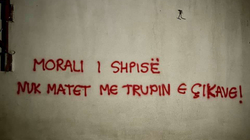 MORALI I SHPISË
NUK MATET ME TRUPIN E ÇIKAVE!